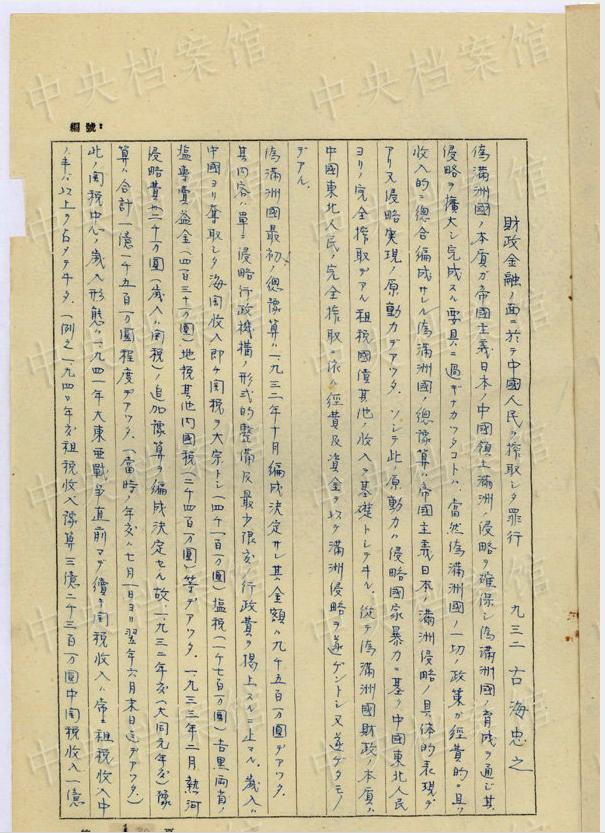 編號：
財政金融ノ面ニ於テ中國人民ヲ搾取シタ罪行　九三二　古海忠之
偽満洲國ノ本質ガ帝國主義日本ノ中國領土満洲ノ侵略ヲ確保シ偽満洲國ノ育成ヲ通ジ其
侵略ヲ擴大シ完成スル要具ニ過ギナカツタコトハ當然偽満洲國ノ一切ノ政策ガ經費的ニ且
收入的ニ總合編成サレル偽満洲國ノ總豫算ハ帝國主義日本ノ満洲侵略ノ具体的表現デ
アリ又侵略実現ノ原動力デアツタ．ソシテ此ノ原動力ハ侵略國家暴力ニ基ク中國東北人民
ヨリノ完全搾取デアル租税國債其他ノ收入ヲ基礎トシテヰル．從テ偽満洲國財政ノ本質ハ
中國東北人民ノ完全搾取ニ依ル經費及資金ヲ以テ満洲侵略ヲ遂ゲントシ又遂ゲタモノ
デアル．
偽満洲國最初ノ總豫算ハ一九三二年十月編成決定サレ其金額ハ九千五百万圓デアツタ．
其内容ハ單ニ侵略行政機構ノ形式的整備及最少限度ノ行政費ヲ揭上スルニ止マル．歳入ハ
中國ヨリ奪取シタ海関收入即チ関税ヲ大宗トシ（四千一百万圓）塩税（一千七百万圓）吉黒両省ノ
塩專賣益金（四百三十万圓）地税其他内國税（二千四百万圓）等デアツタ．一九三三年二月熱河
侵略費二千万圓（歳入ハ関税）ノ追加豫算ヲ編成決定セル故一九三二年度（大同元年度）豫
算ハ合計一億一千五百万圓程度デアツタ．（當時ノ年度ハ七月一日ヨリ翌年六月末日迄デアツタ）
此ノ関税中心ノ歳入形態ハ一九四一年大東亜戰爭直前マデ續キ関税收入ハ常ニ租税收入中
ノ半バ以上ヲ占メテヰタ．（例之一九四〇年度租税收入豫算三億二千三百万圓中関税收入一億